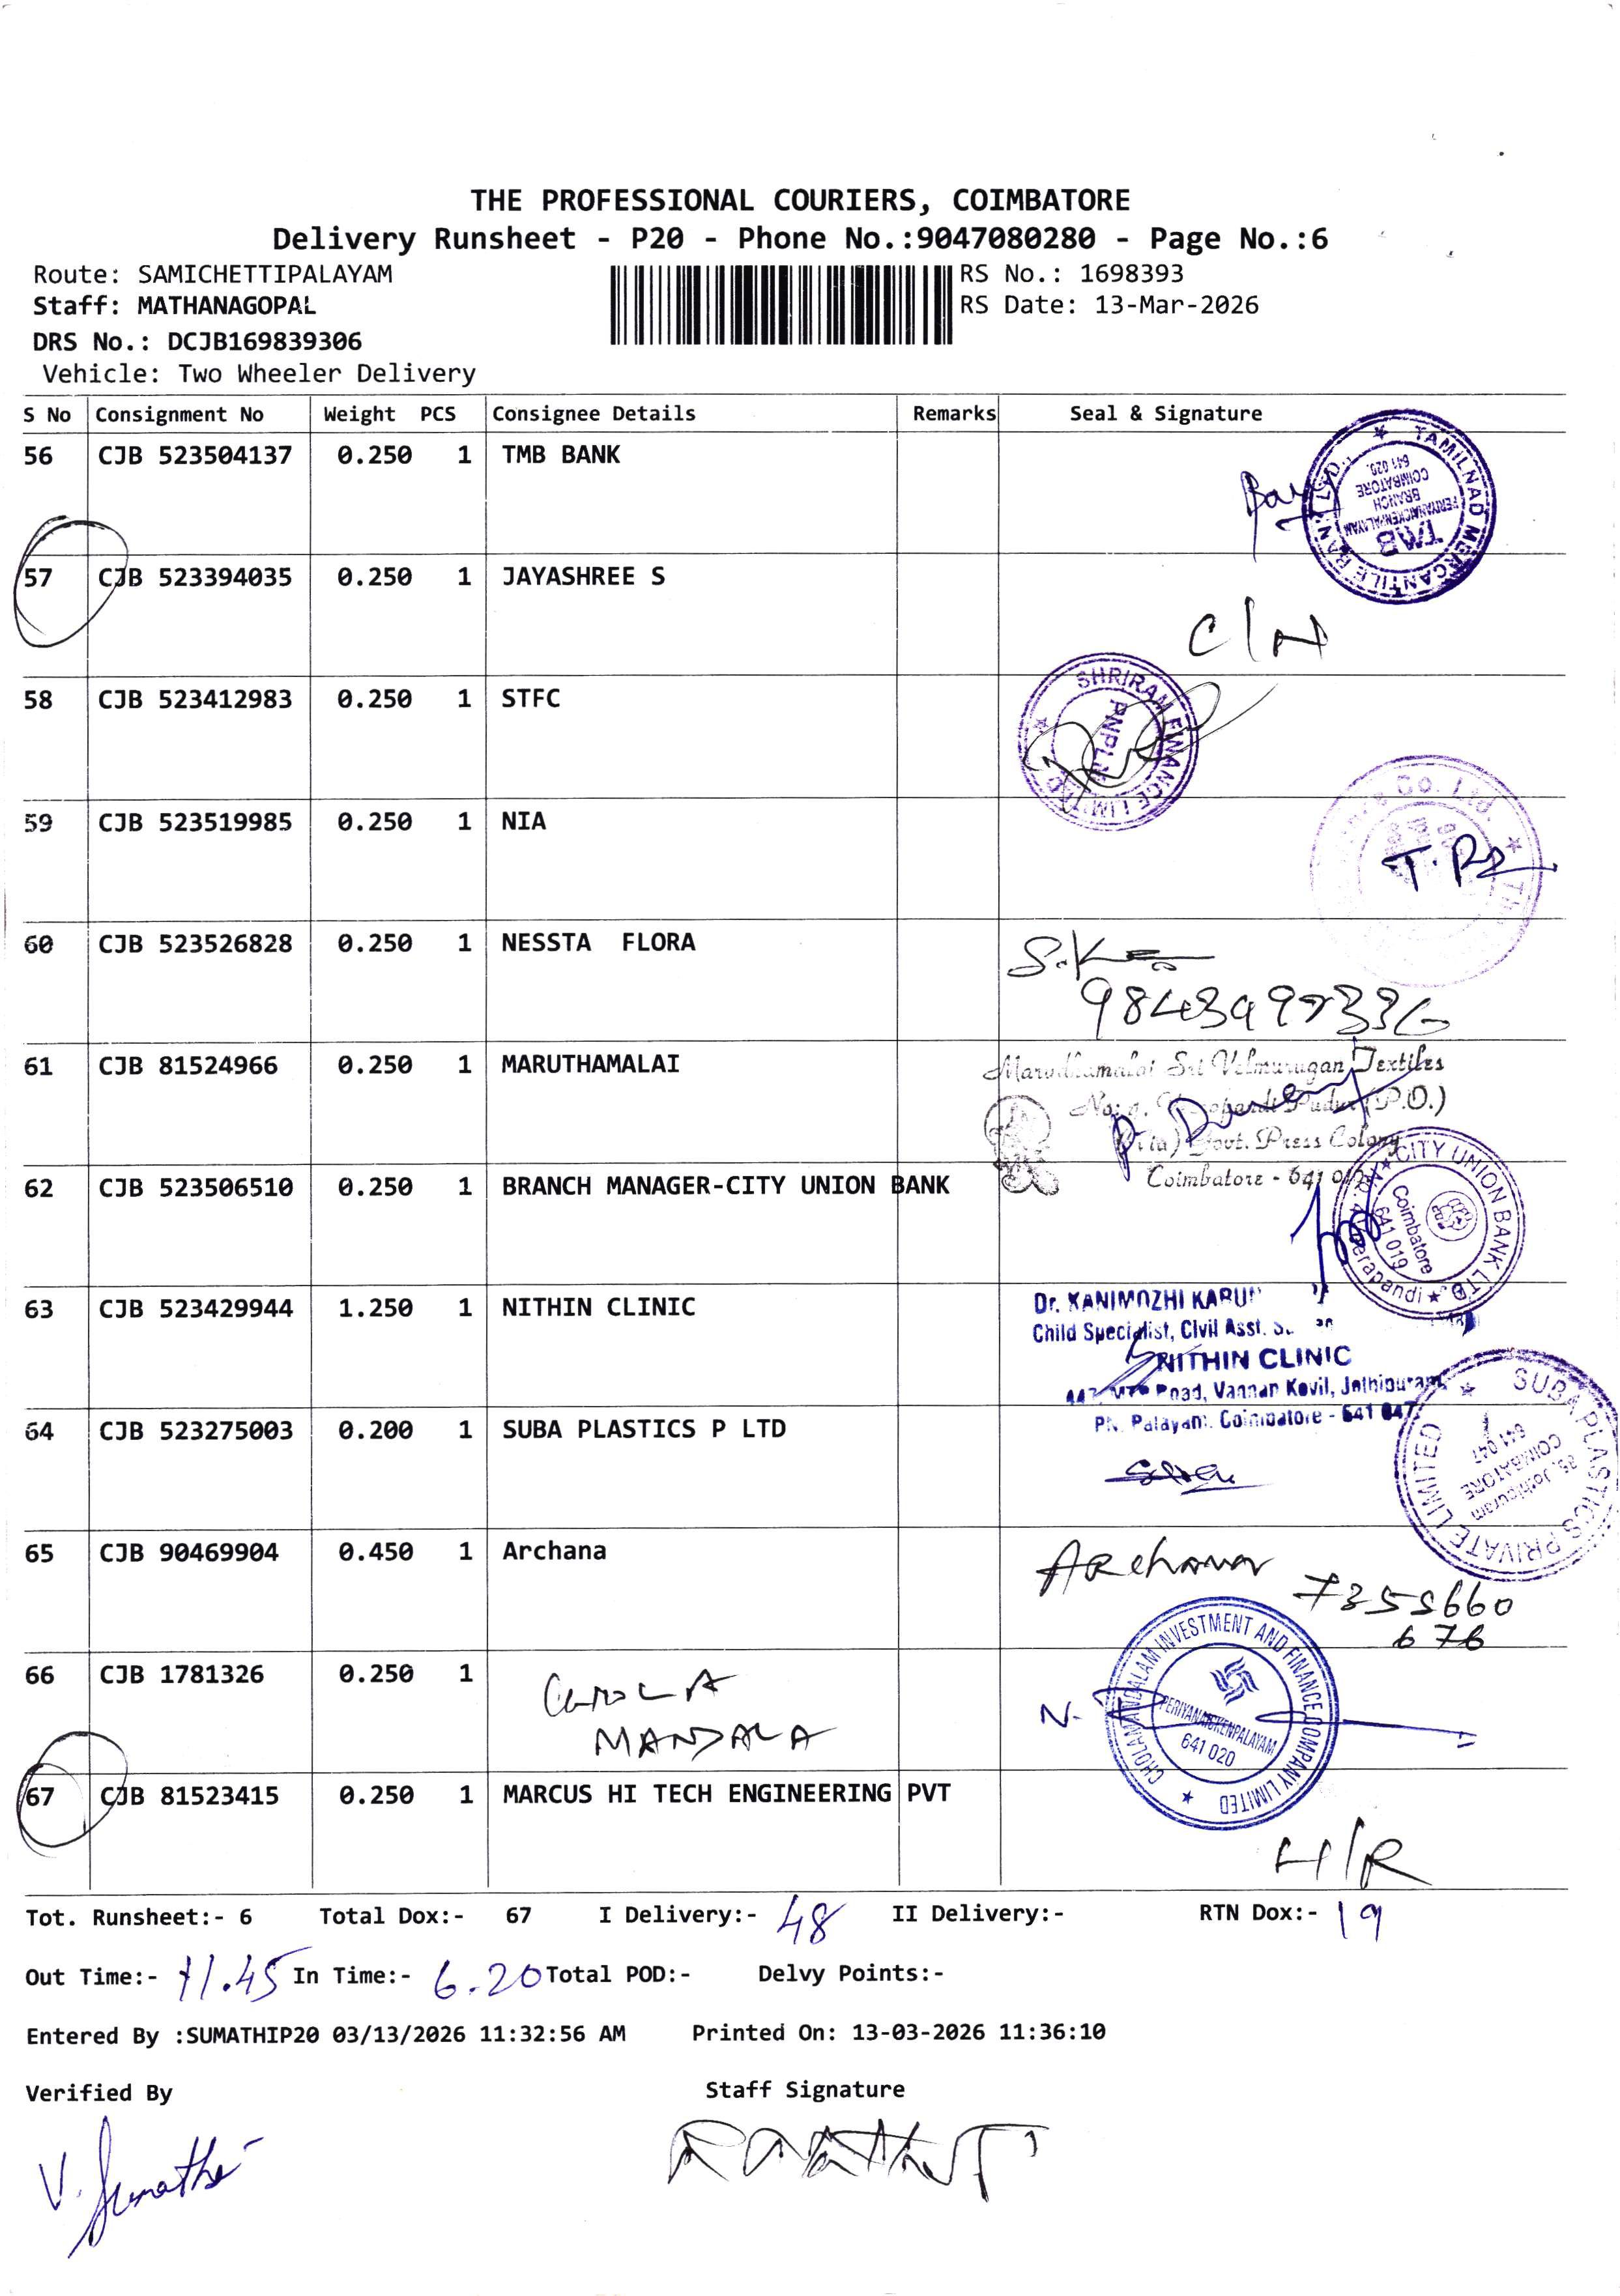 THE PROFESSIONAL COURIERS, COIMBATORE
Delivery Runsheet - P20 - Phone No.:9047080280 - Page No.:6
Route: SAMICHETTIPALAYAM
RS No.: 1698393
Staff: MATHANAGOPAL
RS Date: 13-Mar-2026
DRS No.: DCJB169839306
Vehicle: Two Wheeler Delivery
S No Consignment No Weight PCS Consignee Details Remarks Seal & Signature
56 CJB 523504137 0.250 1 TMB BANK
TAMILNAD MERCANTILE BANK LTD.,
TMB
PERIYANAICKENPALAYAM
BRANCH
COIMBATORE
641 020.
57 CJB 523394035 0.250 1 JAYASHREE S
C/N
58 CJB 523412983 0.250 1 STFC
SHRIRAM FINANCE LIMITED
59 CJB 523519985 0.250 1 NIA
Co. Ltd.
60 CJB 523526828 0.250 1 NESSTA FLORA
61 CJB 81524966 0.250 1 MARUTHAMALAI
Marudhamalai Sri Velmurugan Textiles
(P.O.)
(Via) Govt. Press Colony
Coimbatore - 641 019
62 CJB 523506510 0.250 1 BRANCH MANAGER-CITY UNION BANK
CITY UNION BANK LTD.
Coimbatore
641 019
63 CJB 523429944 1.250 1 NITHIN CLINIC
Dr. KANIMOZHI
Child Specialist, Civil Asst.
NITHIN CLINIC
Road, Vannan Kovil, Jothipuram
PN. Palayam. Coimbatore - 641 047
64 CJB 523275003 0.200 1 SUBA PLASTICS P LTD
SUBA PLASTICS PRIVATE LIMITED
Jothipuram
COIMBATORE
641 047
65 CJB 90469904 0.450 1 Archana
ARchana
7355660
676
66 CJB 1781326 0.250 1
CHOLA
MANDALA
CHOLAMANDALAM INVESTMENT AND FINANCE COMPANY LIMITED
PERIYANAICKENPALAYAM
641 020
67 CJB 81523415 0.250 1 MARCUS HI TECH ENGINEERING PVT
H/R
Tot. Runsheet:- 6 Total Dox:- 67 I Delivery:- 48 II Delivery:- RTN Dox:- 19
Out Time:- 11.45 In Time:- 6.20 Total POD:- Delvy Points:-
Entered By :SUMATHIP20 03/13/2026 11:32:56 AM Printed On: 13-03-2026 11:36:10
Verified By Staff Signature
V. Sumathi